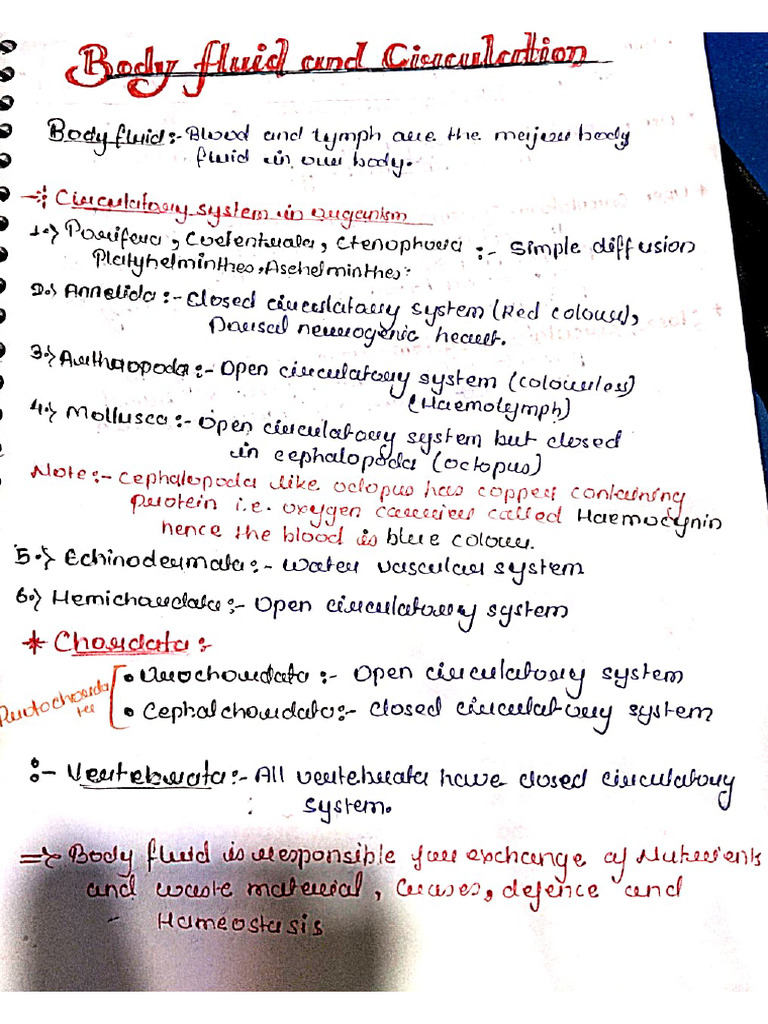 Body fluid and Circulation
Body fluid:- Blood and lymph are the major body
fluid in our body.
Circulatory system in organism
1.) Porifera, Coelenterata, Ctenophora :- Simple diffusion
Platyhelminthes, Aschelminthes:
2.) Annelida:- Closed circulatory system (Red colour),
Dorsal neurogenic heart.
3.) Arthropoda:- Open circulatory system (colourless)
(Haemolymph)
4.) Mollusca:- Open circulatory system but closed
in cephalopoda (octopus)
Note:- Cephalopoda like octopus has copper containing
protein i.e. oxygen carrier called Haemocynin
hence the blood is blue colour.
5.) Echinodermata:- Water vascular system
6.) Hemichordata:- Open circulatory system
* Chordata:-
Protochorda
ta
• Urochordata:- Open circulatory system
• Cephalchordata:- Closed circulatory system
:- Vertebrata:- All vertebrata have closed circulatory
system.
=> Body fluid is responsible for exchange of Nutrients
and waste material, Gases, defence and
- Homeostasis